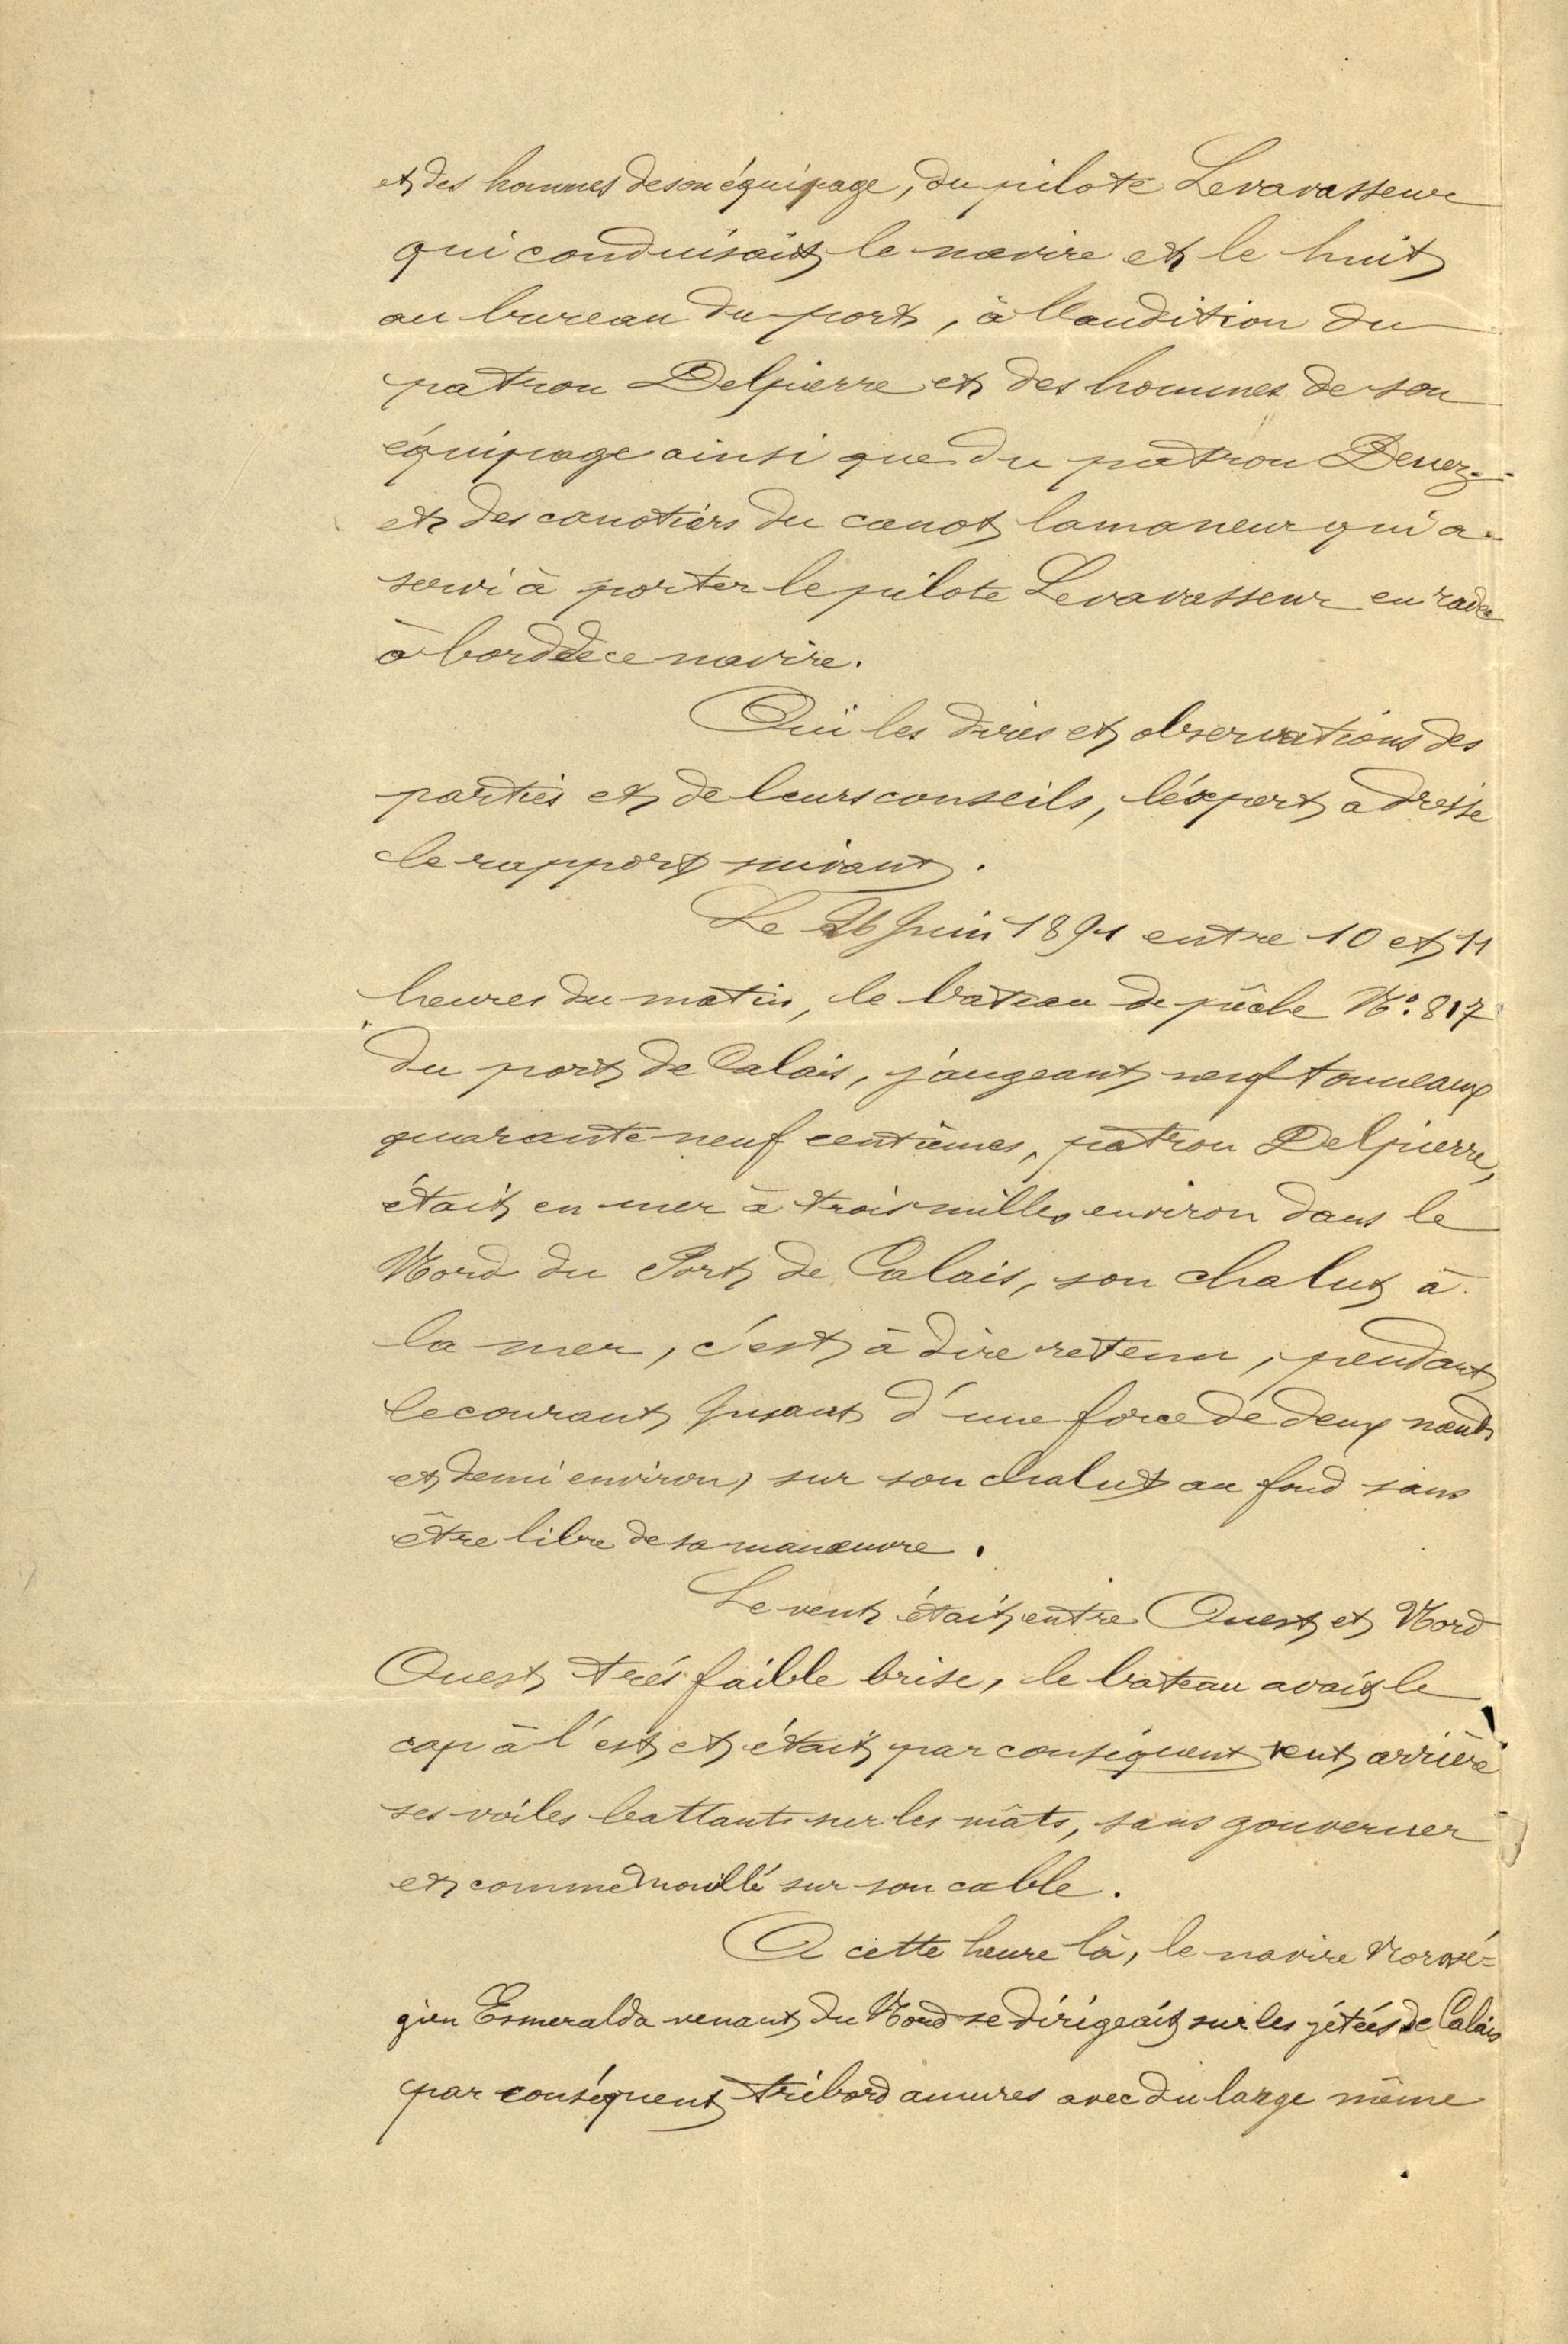 et des hommes de son équipage, du pilote Levavasseur
qui conduisait le navire et le huit
au bureau du port, à l'audition du
patron Delpierre et des hommes de son
équipage ainsi que du patron Devez
et des canotiers du canot lamaneur qui a
servi à porter le pilote Levavasseur en rade
à bord de ce navire.
Ouï les dires et observations des
parties et de leurs conseils, l'éxpert a dressé
le rapport suivant.
Le 26 Juin 1891 entre 10 et 11
heures du matin, le bateau de pêche N°. 817
du port de Calais, jaugeant neuf tonneaux
quarante neuf centièmes, patron Delpierre,
était en mer à trois milles environ dans le
Nord du Port de Calais, son chalut à
la mer, c'est à dire retenu, pendant
le courant Jusant d'une force de deux nœuds
et demi environ, sur son chalut au fond sans
être libre de sa manœuvre.
Le vent était entre Ouest et Nord
Ouest, très faible brise, le bateau avait le
cap à l'est et était par conséquent vent arrière
ses voiles battants sur les mâts, sans gouverner
et comme mouillé sur son cable.
A cette heure là, le navire Norvé=
gien Esmeralda venant du Nord se dirigeait sur les jétées de Calais
par conséquent tribord amures avec du largue même